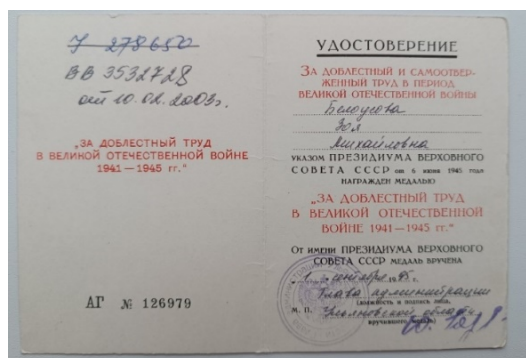 У 278650
ВВ 3532728
от 10.02.2003г.
„ЗА ДОБЛЕСТНЫЙ ТРУД
В ВЕЛИКОЙ ОТЕЧЕСТВЕННОЙ ВОЙНЕ
1941—1945 гг.“
АГ № 126979
УДОСТОВЕРЕНИЕ
ЗА ДОБЛЕСТНЫЙ И САМООТВЕР-
ЖЕННЫЙ ТРУД В ПЕРИОД
ВЕЛИКОЙ ОТЕЧЕСТВЕННОЙ ВОЙНЫ
Белоусова
Зоя
Михайловна
УКАЗОМ ПРЕЗИДИУМА ВЕРХОВНОГО
СОВЕТА СССР от 6 июня 1945 года
НАГРАЖДЕН МЕДАЛЬЮ
„ЗА ДОБЛЕСТНЫЙ ТРУД
В ВЕЛИКОЙ ОТЕЧЕСТВЕННОЙ
ВОЙНЕ 1941—1945 гг.“
От имени ПРЕЗИДИУМА ВЕРХОВНОГО
СОВЕТА СССР МЕДАЛЬ ВРУЧЕНА
1 сентября 1995г.
Глава администрации
(должность и подпись лица,
М. П. Ульяновской области
вручившего медаль)